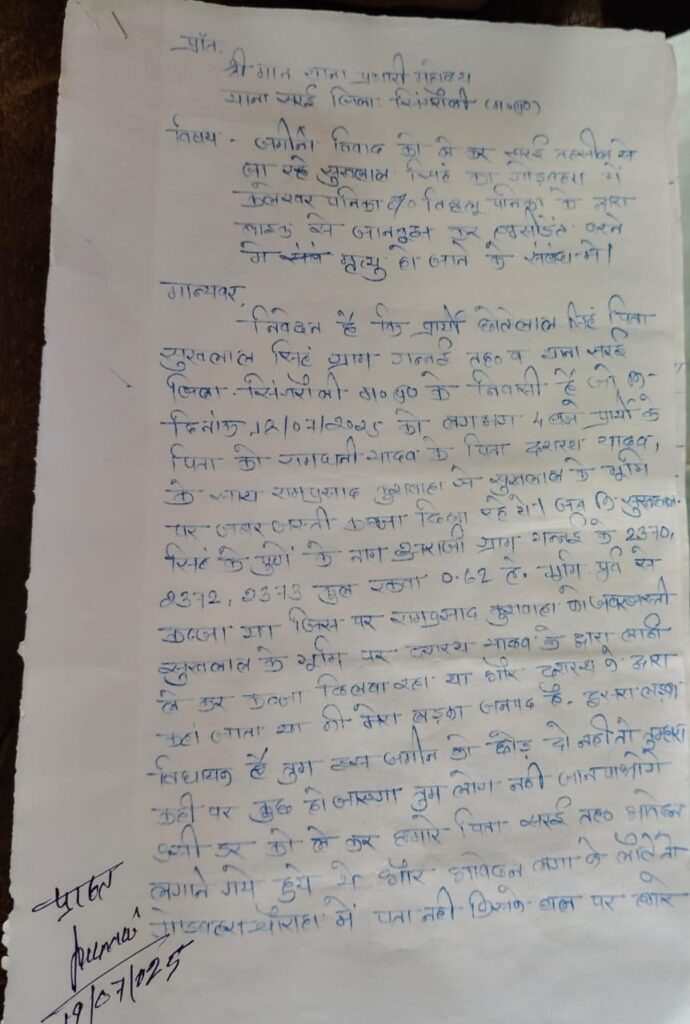 प्रति,
श्री मान थाना प्रभारी महोदय
थाना सरई जिला सिंगरौली (म०प्र०)
विषय - जमीनी विवाद को ले कर सरई तहसील से
जा रहे सुखलाल सिंह का गोड़बहरा में
पनिका S/o पनिका के द्वारा
बाइक से जानबुझ कर एक्सीडेंट करने
से मृत्यु हो जाने के संबंध में।
मान्यवर,
निवेदन है कि प्रार्थी छोटेलाल सिंह पिता
सुखलाल सिंह ग्राम गन्नई तह० व थाना सरई
जिला सिंगरौली म०प्र० के निवासी है जो कि
दिनांक /07/2025 को लगभग 4 बजे प्रार्थी के
पिता को यादव के पिता दशरथ यादव,
के साथ रामप्रसाद कुशवाहा से सुखलाल के भूमि
पर जबर जस्ती कब्जा दिला रहे थे। जब कि सुखलाल
सिंह के पुत्रों के नाम ग्राम गन्नई के 2370,
2372, 2373 कुल रकवा 0.62 हे. भूमि पूर्व से
कब्जा था जिस पर रामप्रसाद कुशवाहा को जबरजस्ती
सुखलाल के भूमि पर दशरथ यादव के द्वारा लाठी
ले कर कब्जा दिलवा रहा था और दशरथ के द्वारा
कहा जाता था की मेरा लड़का जनपद है. दुसरा लड़का
विधायक है तुम इस जमीन को छोड़ दो नही तो तुम्हारा
कही पर कुछ हो जाएगा तुम लोग नही जान पाओगे
इसी डर को ले कर हमारे पिता सरई तह० आवेदन
लगाने गये हुये थे और आवेदन लगा के लौटते
गोड़बहरा चौराहा में पता नही किसके बल पर हमारे
प्राप्त
19/07/025